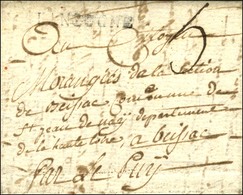 LANGOGNE
Au Citoyen
Morangiès de la section
de beissac commune de
St jean de nay departement
de la haute loire, a beissac
Par le Puÿ